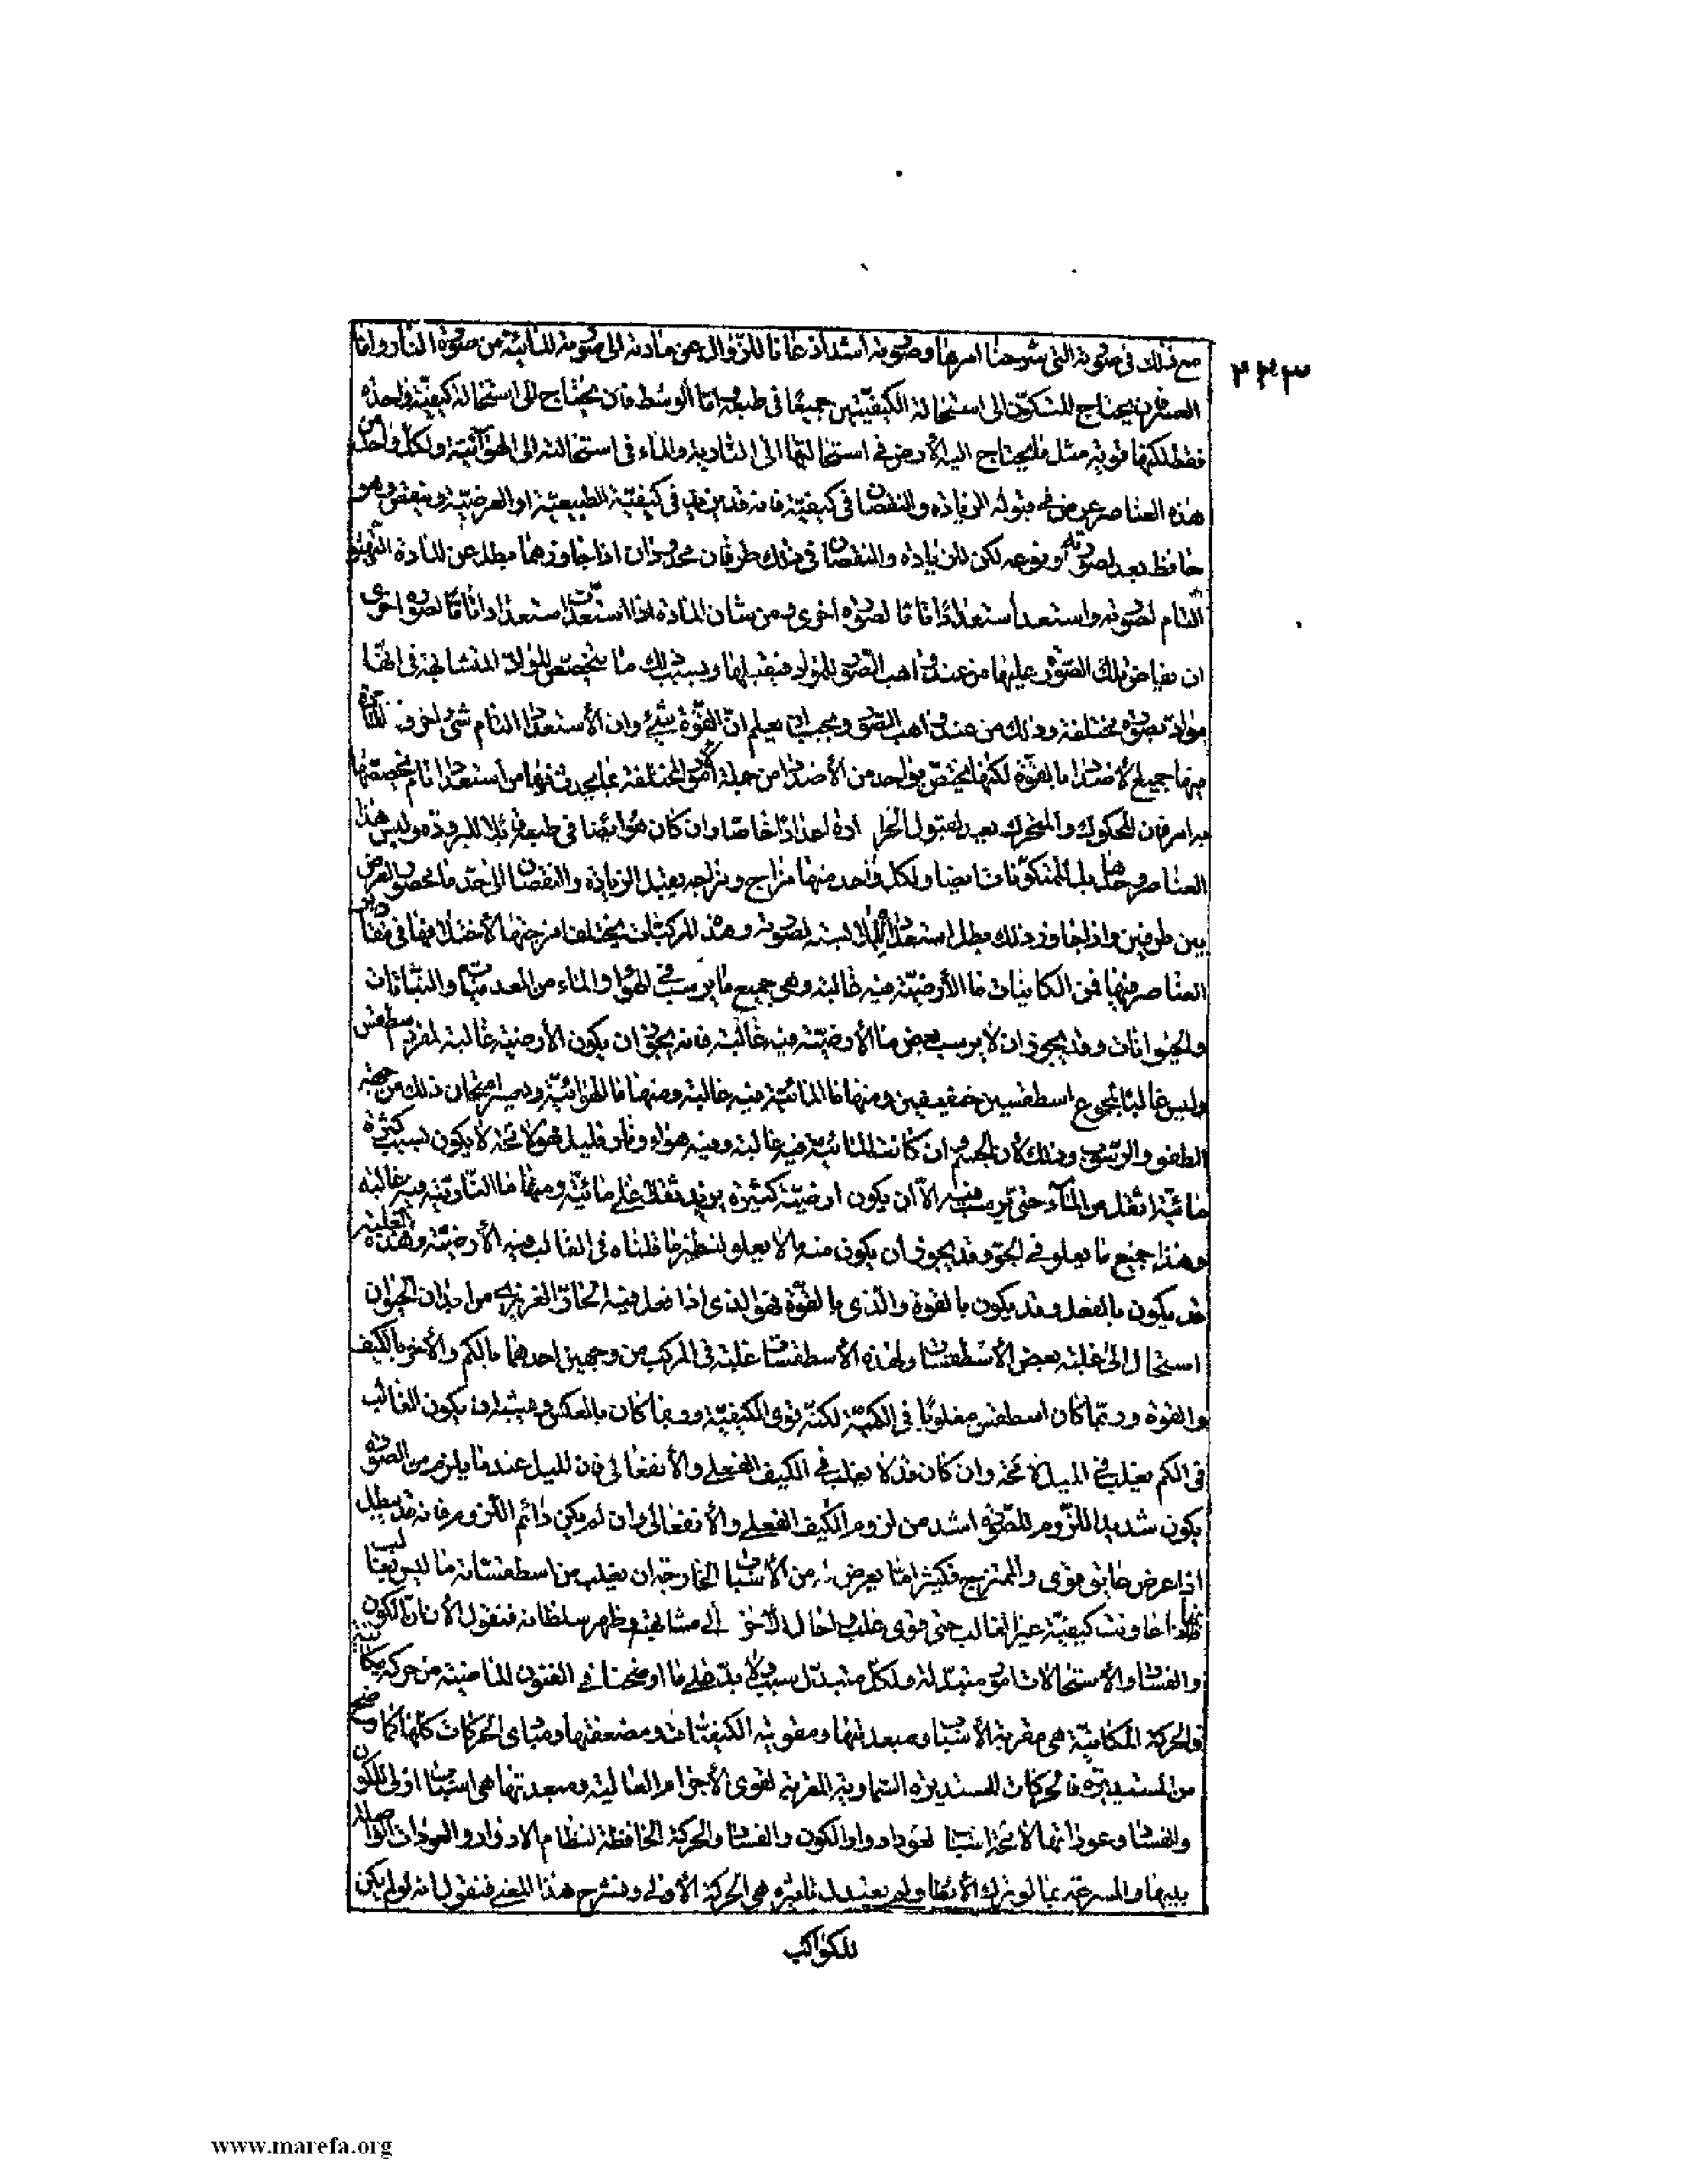 ٣٤٣
مع ذلك في صورته التي شرحنا امرها وصورته اشد اذعانا للزوال عن مادته الى صورته المائية من صورة النار واما
العنصران يحتاج المتكون الى استحالة الكيفيتين جميعا في طبعه واما الوسط فان يحتاج الى استحالة كيفية واحدة
فقط لكنها قوية مثل ما يحتاج اليه الأرض في استحالتها الى النارية والماء في استحالته الى الهوائية ولكل واحد من
هذه العناصر عرض في قبوله الزيادة والنقصان في كيفيته فانه قد يزيد في كيفيته الطبيعية او العرضية وينقص وهو
حافظ بعد لصورته او نوعه لكن للزيادة والنقصان في ذلك طرفان محدودان اذا جاوزهما بطل عن المادة التهيؤ
التام لصورته واستعد استعدادا تاما لصورة اخرى ومن شأن المادة اذا استعدت استعدادا تاما لصورة اخرى
ان يفاض تلك الصورة عليها من عند واهب الصور للمواد فيقبلها وبسبب ذلك ما يتخصص المواد المتشابهة في انها
مواد بصور مختلفة وذلك من عند واهب الصور ويجب ان يعلم ان القوة شيء وان الأستعداد التام شيء اخر وفي المادة
فيها جميع الأضداد بالقوة لكنها يختص بواحد من الأضداد من جملة الأمور المختلفة بما يحدث فيها من استعداد تام يخصصها
به امر فان المحكوك والمتحرك يعد لقبول الحرارة اعدادا خاصا وان كان هو ايضا في طبعه قابلا للبرودة وليس هذا
العناصر وحدها بل المتكونات ايضا ولكل واحد منها مزاج ومزاجه يقبل الزيادة والنقصان الى حد ما محصور العرض
بين طرفين واذا جاوز ذلك بطل استعداده لملابسة لصورته وهذه المركبات يختلف امزجتها لأختلافها في مقادير
العناصر فيها فمن الكاينات ما الأرضية فيه غالبة وهي جميع ما يرسب في الهواء والماء من المعدنيات والنباتات
والحيوانات وقد يجوز ان لا يرسب بعض ما الأرضية فيه غالبة فانه يجوز ان يكون الأرضية غالبة لمفرد اسطقس
وليس غالبا لمجموع اسطقسين خفيفين ومنها ما المائية فيه غالبة ومنها ما الهوائية ويعسر امتحان ذلك من جهة
الطفو والرسوب وذلك لأن الجسم وان كانت المائية فيه غالبة وفيه هواء ونار قليل فهو لا محة لا يكون بسبب كثرة
مائية اثقل من الماء حتى يرسب فيه الا ان يكون ارضية كثيرة يزيد ثقلا على مائية ومنها ما النارية فيه غالبة
وهذا جميع ما يعلو في الجو وقد يجوز ان يكون منه ما لا يعلو لنظير ما قلناه في الغالب فيه الأرضية وهذه الغلبة
قد يكون بالفعل وقد يكون بالقوة والذي بالقوة فهو الذي اذا فعل فيه الحار الغريزي من ابدان الحيوان
استحال الى غلبة بعض الأسطقسات ولهذه الأسطقسات غلبة في المركب من وجهين احدهما بالكم والأخر بالكيف
والقوة وربما كان اسطقس مغلوبا في الكمية لكنه قوى الكيفية وربما كان بالعكس ويشبه ان يكون الغالب
في الكم يغلب في الميل لا محة وان كان قد لا يغلب في الكيف الفعلي والأنفعالي فان الميل عند ما يلزم من الصورة
يكون شديد اللزوم للصورة اشد من لزوم الكيف الفعلي والأنفعالي وان لم يكن دائم اللزوم فانه قد يبطل
اذا عرض عايق قوى والممتزج فكثيرا ما يعرض له من الأسباب الخارجة ان يغلب من اسطقساته ما ليس بغالب
فانها اذا عاونت كيفية غير الغالب حتى قوى غلب واحال الأخر الى مشابهته وظهر سلطانه فنقول الأن ان الكون
والفساد والأستحالات امور متبدلة ولكل متبدل سبب ولا بد على ما اوضحنا في الفنون الماضية من حركة مكانية
فالحركة المكانية هي مقربة الأسباب ومبعدتها ومقوية الكيفيات ومضعفتها ومبادى الحركات كلها كما وضح
من المستديرة فالحركات المستديرة السماوية المقربة لقوى الأجرام العالية ومبعدتها هي اسباب اولى للكون
والفساد وعوداتها لا محة اسباب لعود ادوار الكون والفساد والحركة الحافظة لنظام الادوار والعودات الواصلة
بينها والمسرعة بما لو ترك لأبطأ ولم يعتدل تأثيره هي الحركة الأولى ونشرح هذا المعنى فنقول انه لو لم يكن
للكواكب
www.marefa.org